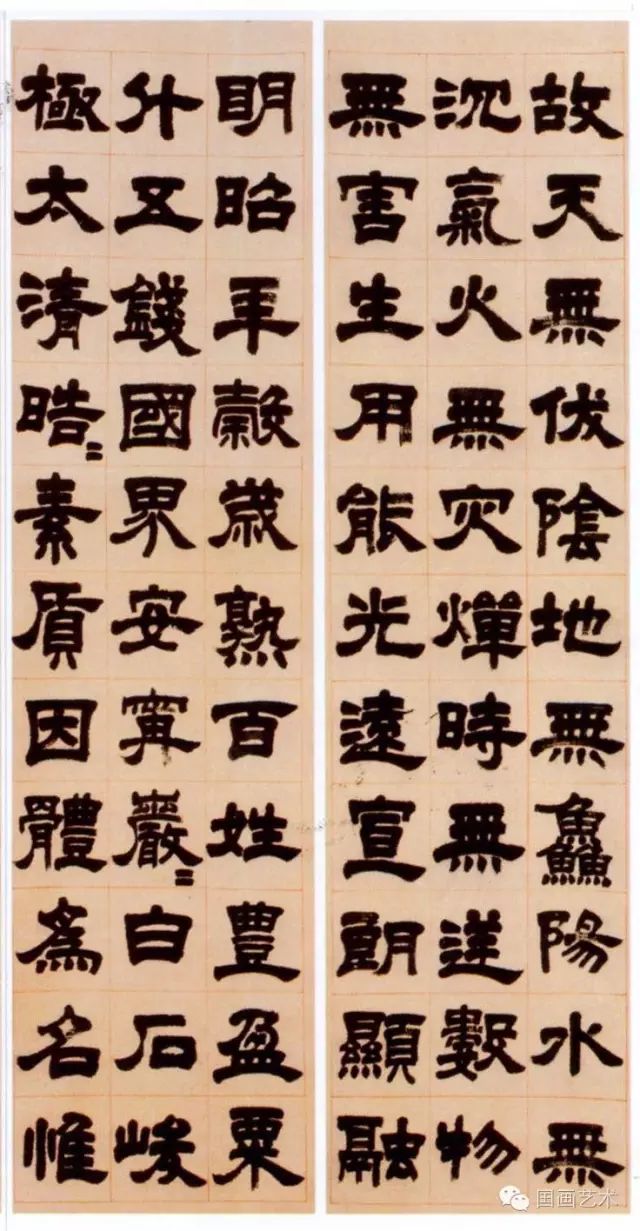 故天無伏陰地無鱻陽水無
沉氣火無灾燀時無逆數物
無害生用能光遠宣朗顯融
明昭年穀歲熟百姓豊盈粟
什五錢國界安寍巖〻白石峻
極太清晧〻素質因體為名惟
国画艺术